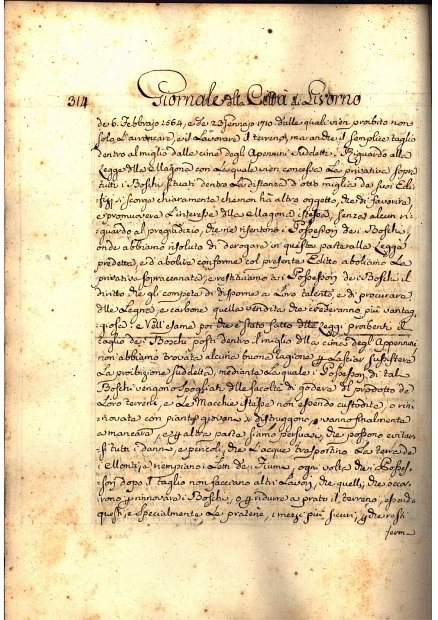 314 Giornale della Città di Livorno
de 6. Febbraio 1664, e de 23 Gennajo 1710 dalle quali vien proibito non
solo l'arroncare, e il lavorare il terreno, ma anche il semplice taglio
dentro al miglio dalle cime degli Apennini suddetti. Riguardo alla
Legge della Magona con la quale vien concessa la privativa sopra
tutti i Boschi situati dentro la distanza d'otto miglia da suoi Edi-
fizzi si scorge chiaramente che non hà altro oggetto, che di favorire,
e promuovere l'interesse della Magona istessa, senza alcun ri-
guardo al pregiudizio, che ne risentono i Possessori dei Boschi
onde abbiamo risoluto di derogare in questa parte alla Legge
predetta, ed abolire conforme col presente Editto aboliamo la
privativa sopraccennata, e restituiamo ai Possessori dei Boschi il
diritto che gli compete di disporne a loro talento, e di procurare
delle Legne, e carbone quella vendita che crederanno più vantag-
giosa: e nell'esame poi che è stato fatto delle Leggi proibenti il
taglio dei Boschi posti dentro il miglio dalla cima degl'Appennini
non abbiamo trovata alcuna buona ragione per lasciar sussistere
la proibizione suddetta, mediante la quale i Possessori di tal
Boschi vengono spogliati della facoltà di godere il prodotto de
loro terreni, e le Macchie istesse non essendo custodite, o rin-
novate con piante giovani si distruggono, e vanno finalmente
a mancare, e per altra parte siamo persuasi, che possono evitar-
si tutti i danni, e pericoli, che l'acque trasportino la terra de
i Monti, e riempiano i Letti dei Fiumi, ogni volta che i Posses-
sori dopo il taglio non facciano altri Lavori, che quelli, che occor-
rono per rinnovare i Boschi, o per ridurre a prato il terreno, essendo
questi, e specialmente le praterie, i mezzi più sicuri, per che resti
ferma